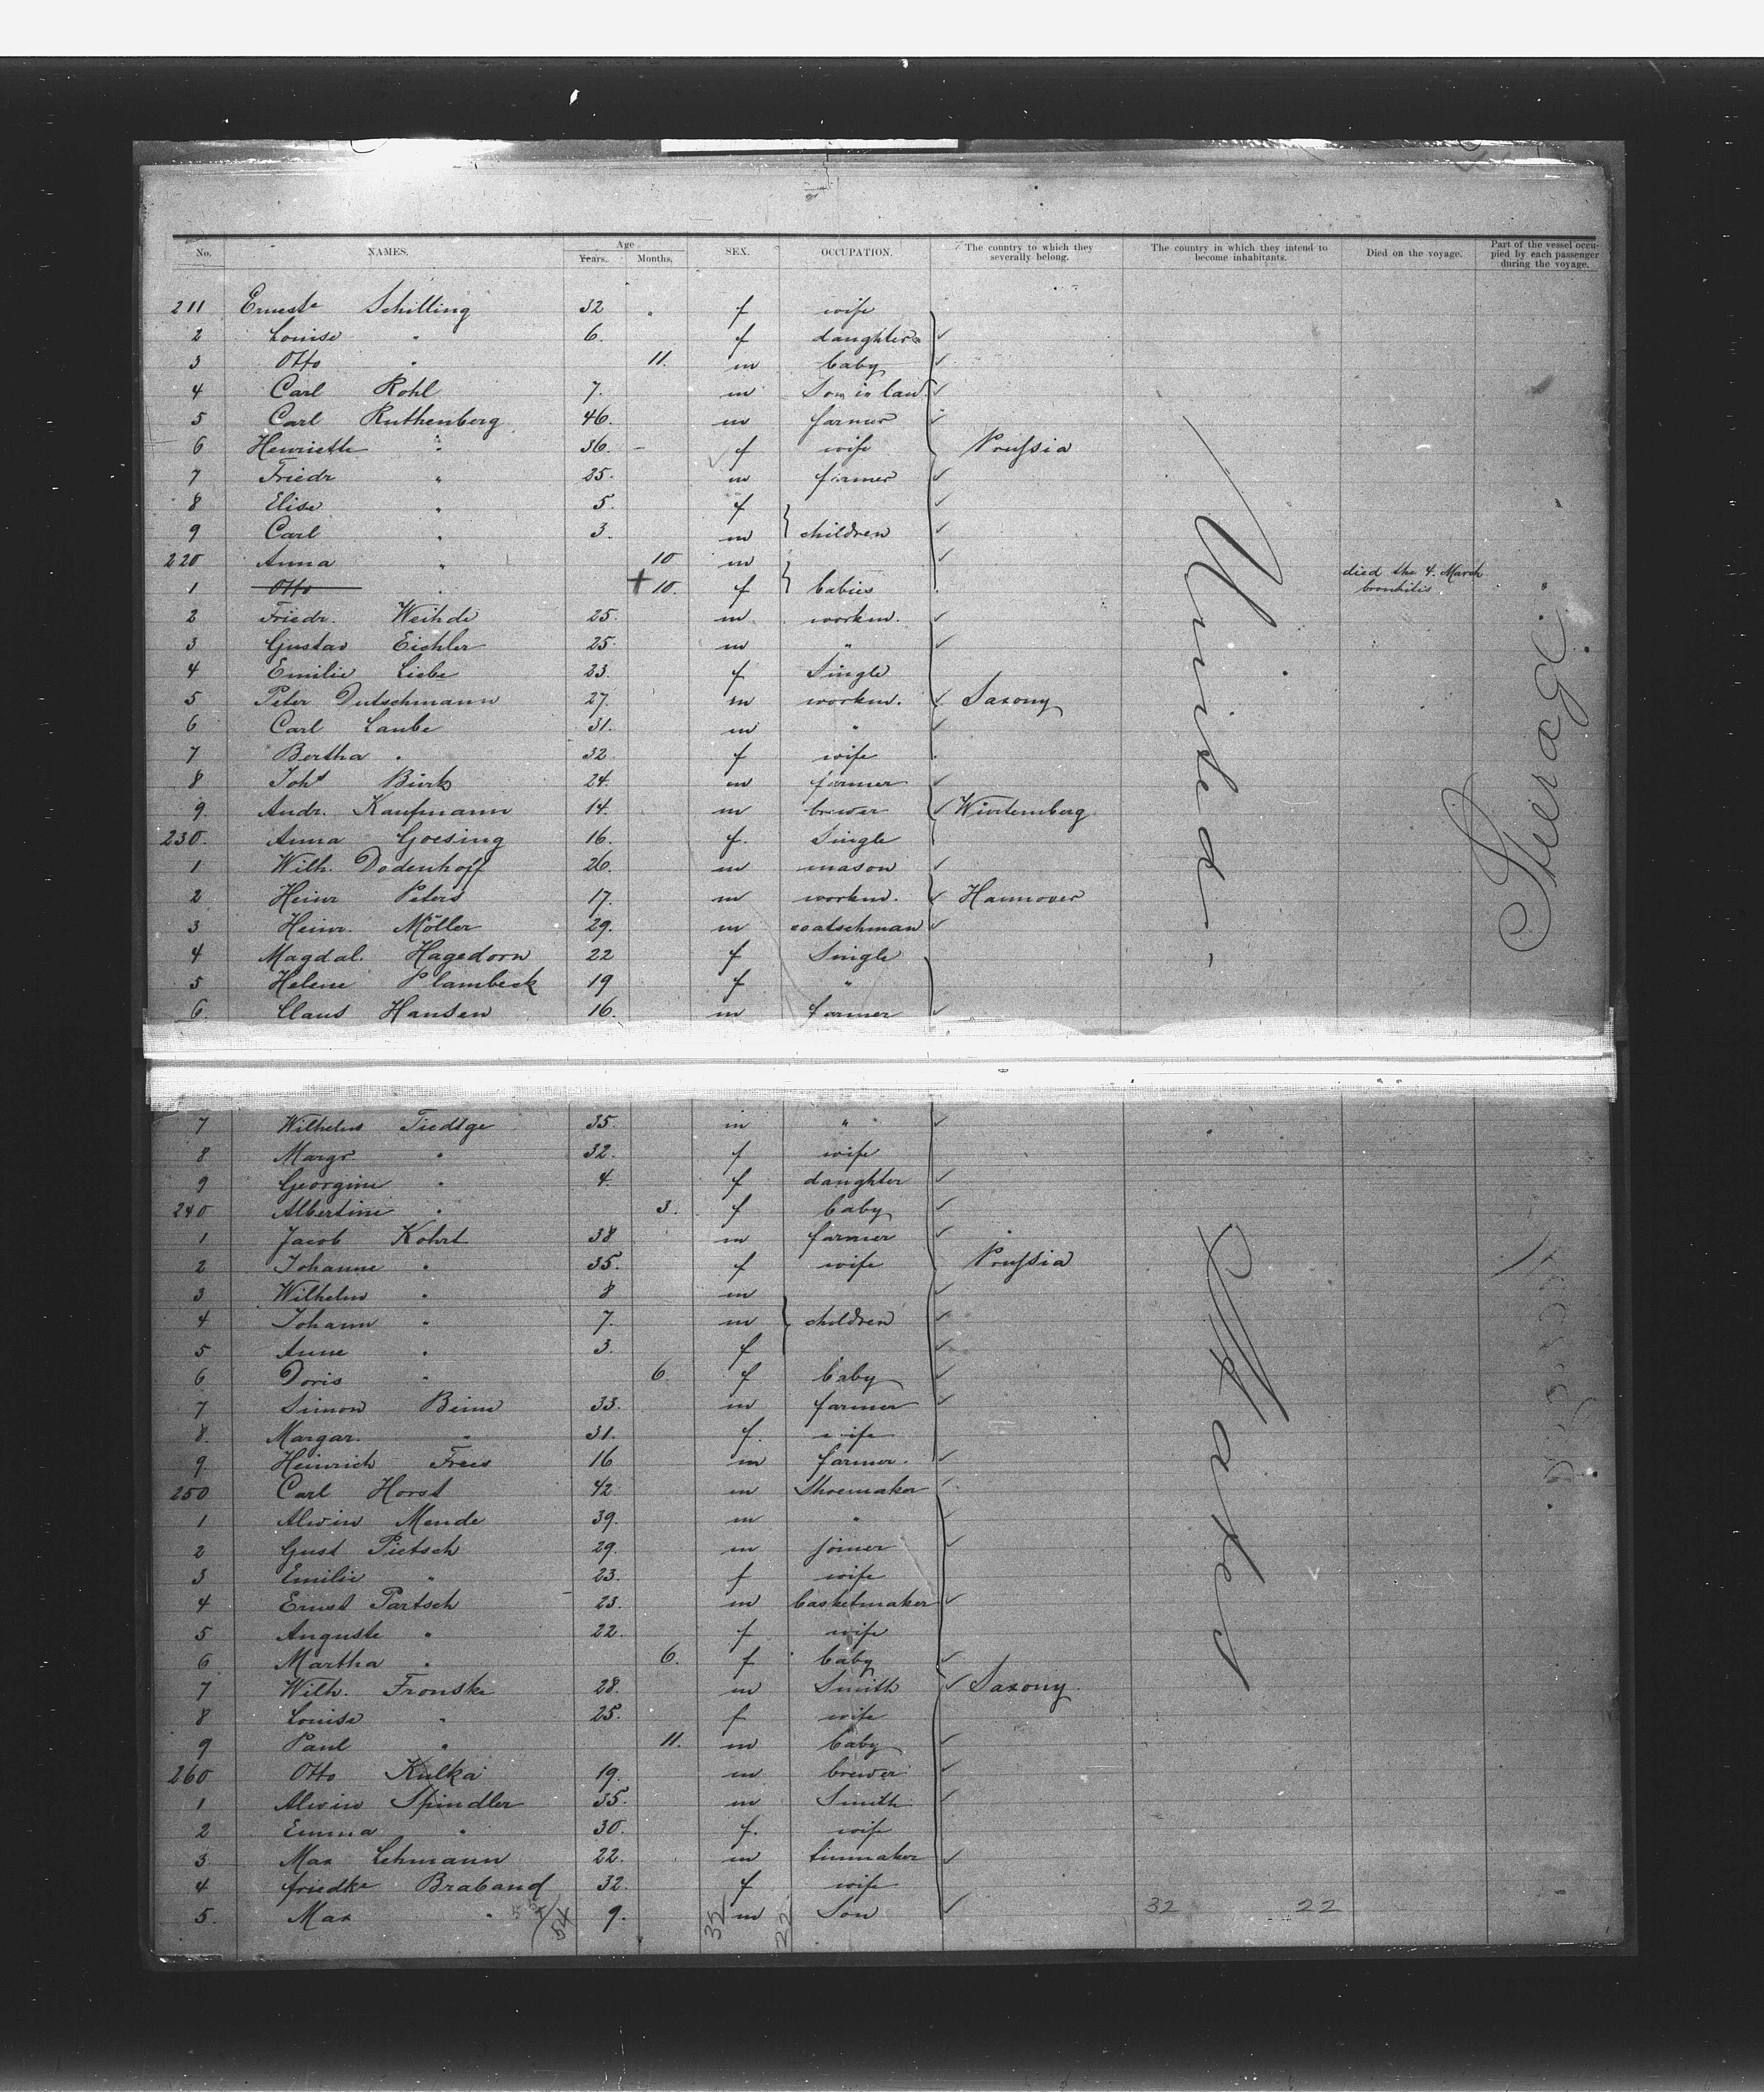 No. NAMES. Age Years. Months. SEX. OCCUPATION. The country to which they severally belong. The country in which they intend to become inhabitants. Died on the voyage. Part of the vessel occupied by each passenger during the voyage.
211 Ernest Schilling 32 f wife
2 Louise " 6. f daughter
3 Otto " 11. m baby
4 Carl Rohl 7. m Son in law
5 Carl Ruthenberg 46. m farmer
6 Henriette " 36. - f wife Preussia
7 Friedr " 25. m farmer
8 Elise " 5. f
9 Carl " 3. m children
220 Anna " 10 m
1 Otto + 10. f babies died the 4. March bronkitis "
2 Friedr. Weihde 25. m workm.
3 Gustav Eichler 25. m "
4 Emilie Liebe 23. f Single
5 Peter Dutschmann 27. m workm. Saxony
6 Carl Laube 31. m "
7 Bertha " 32 f wife
8 Joh Bürk 24. m farmer
9. Andr. Kaufmann 14. m brewer Würtemberg
230. Anna Goesing 16. f. Single
1 Wilh. Dodenhoff 26. m mason
2 Heinr Peters 17. m workm. Hannover
3 Heinr. Möller 29. m coatschman
4 Magdal. Hagedorn 22 f Single
5 Helene Plambeck 19 f "
6. Claus Hansen 16. m farmer
United States
Sterage
7 Wilhelm Tiedtge 35. m " "
8 Margr. " 32. f wife
9 Georgine " 4. f daughter
240 Albertine " 3. f baby
1 Jacob Kohrt 38 m farmer
2 Johanne " 35. f wife Preussia
3 Wilhelm " 8 m
4 Johann " 7. m children
5 Anne " 3. f
6 Doris " 6. f baby
7 Simon Beinn 33. m farmer
8. Margar. " 31. f. wife
9. Heinrich Frees 16 m farmer.
250 Carl Horst 42. m Shoemaker
1 Alwin Mende 39. m "
2 Gust Pietsch 29. m joiner
3 Emilie " 23. f wife
4 Ernst Partsch 23. m basketmaker
5 Auguste " 22. f wife
6 Martha " 6. f baby
7 Wilh. Fronske 28. m Smith Saxony
8 Louise " 25. f wife
9 Paul " 11. m baby
260 Otto Kulka 19. m brewer
1 Alwin Spindler 35. m Smith
2 Emma " 30. f. wife
3 Max Lehmann 22. m tinmaker
4 friedke Braband 32. f wife
5. Max " 9. m Son 32 22
54 32 22